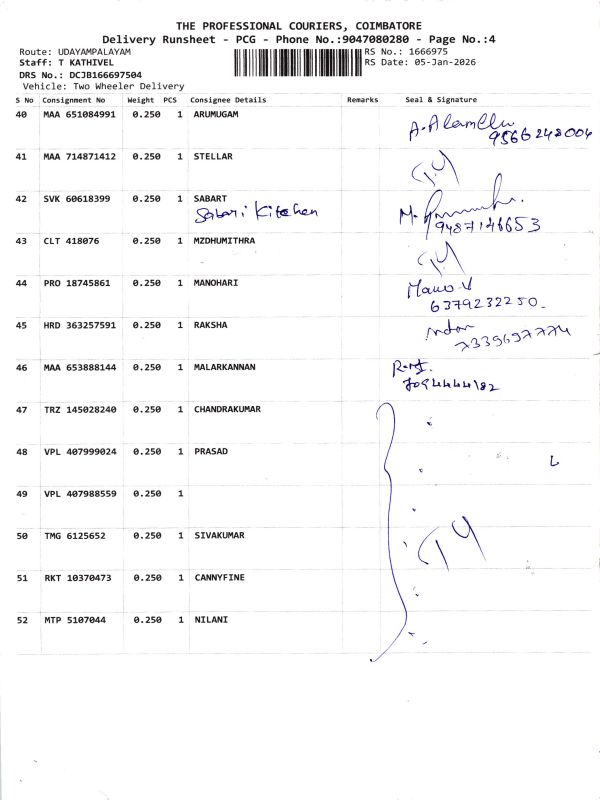 THE PROFESSIONAL COURIERS, COIMBATORE
Delivery Runsheet - PCG - Phone No.:9047080280 - Page No.:4
Route: UDAYAMPALAYAM RS No.: 1666975
Staff: T KATHIVEL RS Date: 05-Jan-2026
DRS No.: DCJB166697504
Vehicle: Two Wheeler Delivery
S No Consignment No Weight PCS Consignee Details Remarks Seal & Signature
40 MAA 651084991 0.250 1 ARUMUGAM
9566248004
41 MAA 714871412 0.250 1 STELLAR
42 SVK 60618399 0.250 1 SABART
Sabari Kitchen
9487146653
43 CLT 418076 0.250 1 MZDHUMITHRA
44 PRO 18745861 0.250 1 MANOHARI
6379232250
45 HRD 363257591 0.250 1 RAKSHA
46 MAA 653888144 0.250 1 MALARKANNAN
47 TRZ 145028240 0.250 1 CHANDRAKUMAR
48 VPL 407999024 0.250 1 PRASAD
49 VPL 407988559 0.250 1
50 TMG 6125652 0.250 1 SIVAKUMAR
51 RKT 10370473 0.250 1 CANNYFINE
52 MTP 5107044 0.250 1 NILANI